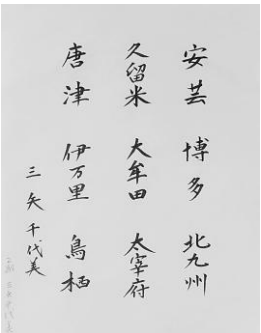 安芸 博多 北九州
久留米 大牟田 太宰府
唐津 伊万里 鳥栖
三矢千代美